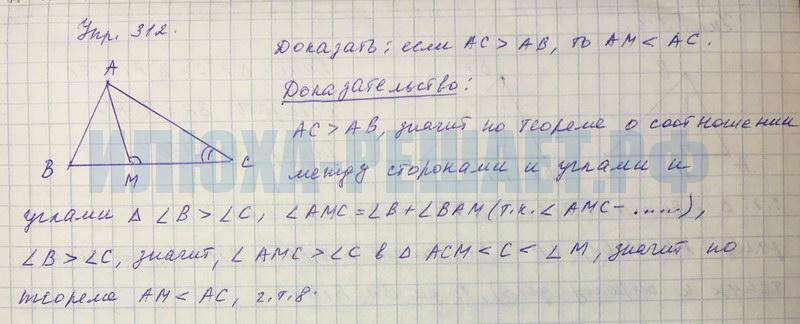 Упр. 312.
A
B
M
C
Доказать: если AC > AB, то AM < AC.
Доказательство:
AC > AB, значит по теореме о соотношении
между сторонами и углами и
углами Δ ∠B > ∠C, ∠AMC = ∠B + ∠BAM (т.к. ∠AMC - .....),
∠B > ∠C, значит, ∠AMC > ∠C в Δ ACM < C < ∠M, значит по
теорема AM < AC, г.т.д.
ИЛЮХА-РЕШАЕТ.РФ